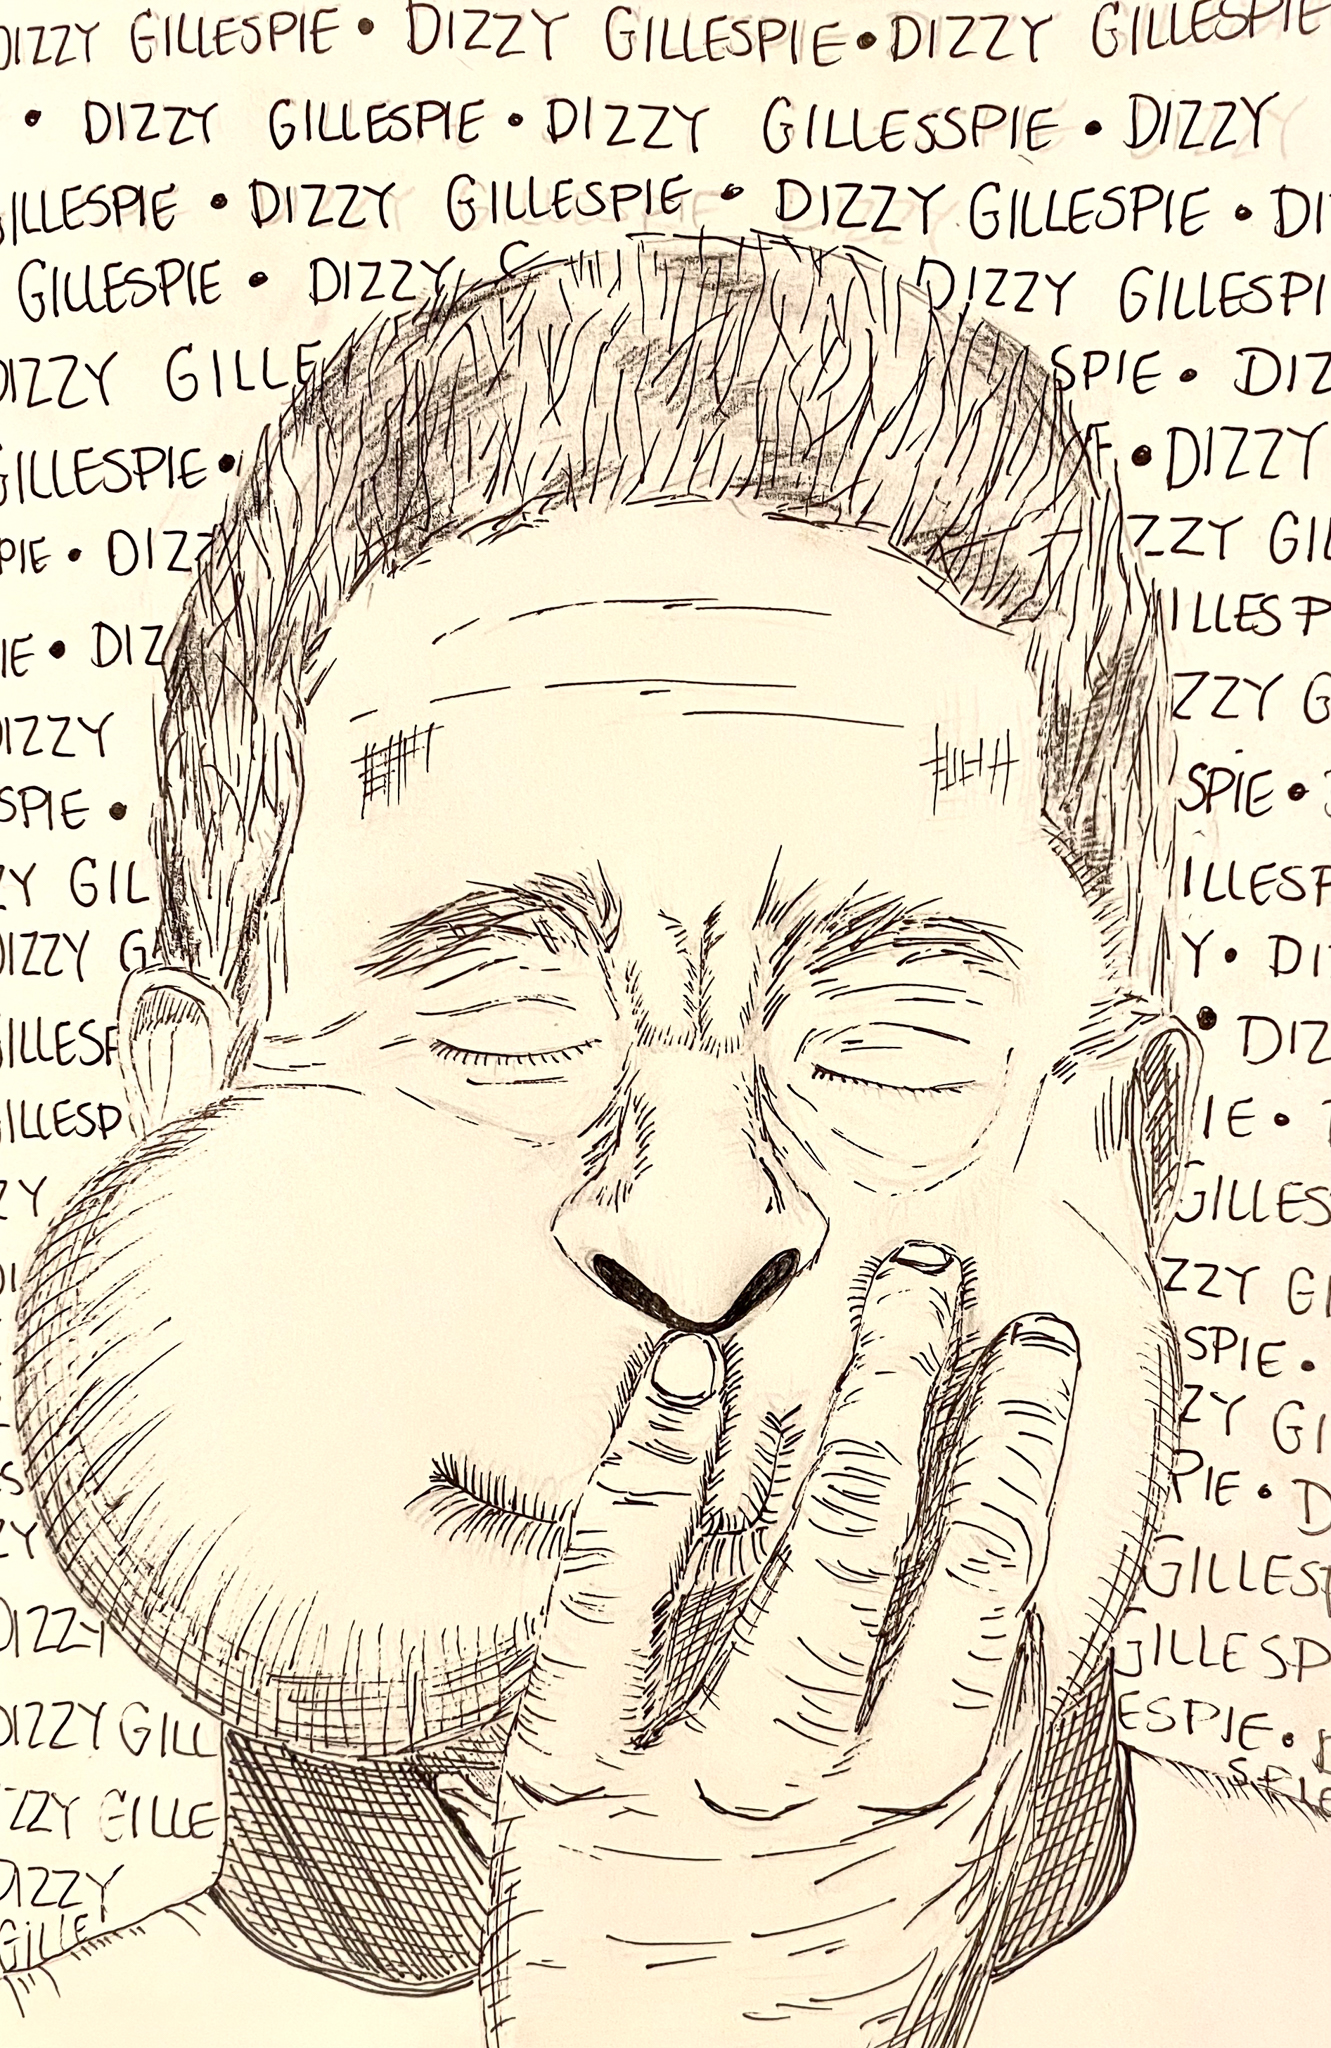 DIZZY GILLESPIE • DIZZY GILLESPIE • DIZZY GILLESPIE
• DIZZY GILLESPIE • DIZZY GILLESSPIE • DIZZY
GILLESPIE • DIZZY GILLESPIE • DIZZY GILLESPIE • DI
GILLESPIE • DIZZY G DIZZY GILLESPI
DIZZY GILLE SPIE • DIZ
GILLESPIE • E • DIZZY
PIE • DIZZ ZZY GIL
IE • DIZ ILLESP
DIZZY ZZY G
SPIE • SPIE •
ZY GIL ILLESP
DIZZY G Y • DI
GILLESP • DIZ
GILLESP IE •
ZY GILLES
DI ZZY GI
SPIE •
ZY GI
S PIE • D
ZY GILLESP
DIZZY GILLESP
DIZZY GILL ESPIE •
ZZY GILLE
DIZZY
GILLE